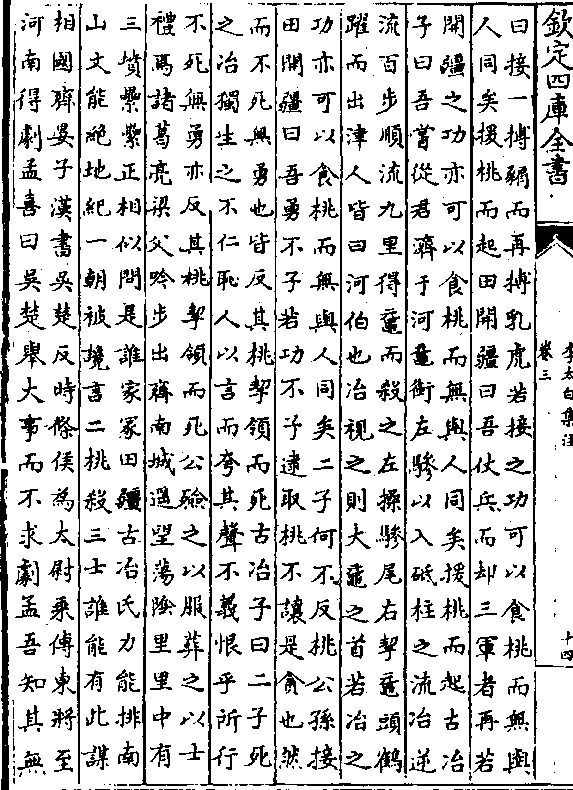 欽定四庫全書
李太白集注
卷三
十四
曰接一搏豣而再搏乳虎若接之功可以食桃而無與
人同矣援桃而起田開疆曰吾仗兵而却三軍者再若
開疆之功亦可以食桃而無與人同矣援桃而起古冶
子曰吾嘗從君濟于河黿銜左驂以入砥柱之流冶逆
流百步順流九里得黿而殺之左操驂尾右挈黿頭鶴
躍而出津人皆曰河伯也冶視之則大黿之首若冶之
功亦可以食桃而無與人同矣二子何不反桃公孫接
田開疆曰吾勇不子若功不子逮取桃不讓是貪也然
而不死無勇也皆反其桃挈領而死古冶子曰二子死
之冶獨生之不仁恥人以言而夸其聲不義恨乎所行
不死無勇亦反其桃挈領而死公殮之以服葬之以士
禮焉諸葛亮梁父吟步出齊南城遥望蕩陰里里中有
三墳纍纍正相似問是誰家冢田疆古冶氏力能排南
山文能絶地紀一朝被讒言二桃殺三士誰能有此謀
相國齊晏子漢書吳楚反時條侯為太尉乘傳東將至
河南得劇孟喜曰吳楚舉大事而不求劇孟吾知其無